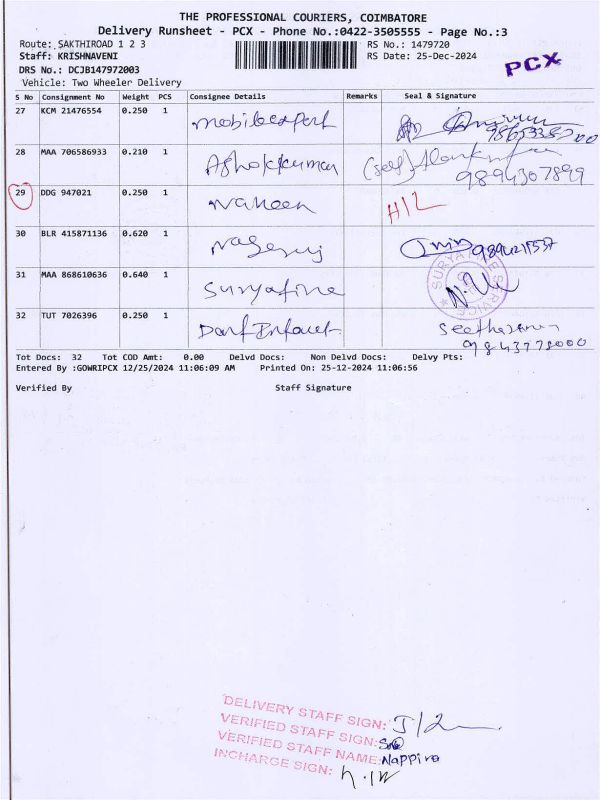 THE PROFESSIONAL COURIERS, COIMBATORE
Delivery Runsheet - PCX - Phone No.:0422-3505555 - Page No.:3
Route: SAKTHIROAD 1 2 3
RS No.: 1479720
Staff: KRISHNAVENI
RS Date: 25-Dec-2024
PCX
DRS No.: DCJB147972003
Vehicle: Two Wheeler Delivery
S No Consignment No Weight PCS Consignee Details Remarks Seal & Signature
27 KCM 21476554 0.250 1
28 MAA 706586933 0.210 1 Ashokkumar (self) 9894307899
29 DDG 947021 0.250 1 Naheen
30 BLR 415871136 0.620 1
31 MAA 868610636 0.640 1 Suryafine
32 TUT 7026396 0.250 1
9843778000
Tot Docs: 32 Tot COD Amt: 0.00 Delvd Docs: Non Delvd Docs: Delvy Pts:
Entered By :GOWRIPCX 12/25/2024 11:06:09 AM Printed On: 25-12-2024 11:06:56
Verified By Staff Signature
DELIVERY STAFF SIGN:
VERIFIED STAFF SIGN:
VERIFIED STAFF NAME:
INCHARGE SIGN: